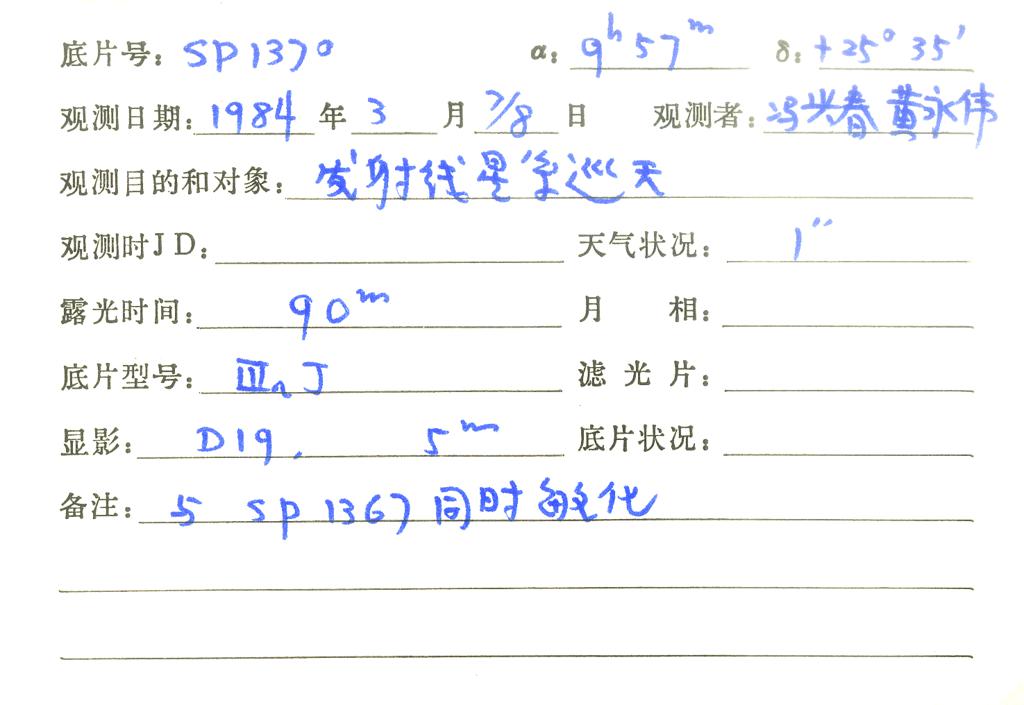 底片号: SP1370 α: 9ʰ 57ᵐ δ: +25° 35′
观测日期: 1984 年 3 月 7/8 日 观测者: 冯兴春 黄永伟
观测目的和对象: 发射线星系巡天
观测时JD: 天气状况: 1″
露光时间: 90ᵐ 月 相:
底片型号: ⅢaJ 滤光片:
显影: D19, 5ᵐ 底片状况:
备注: 与 SP1367同时敏化